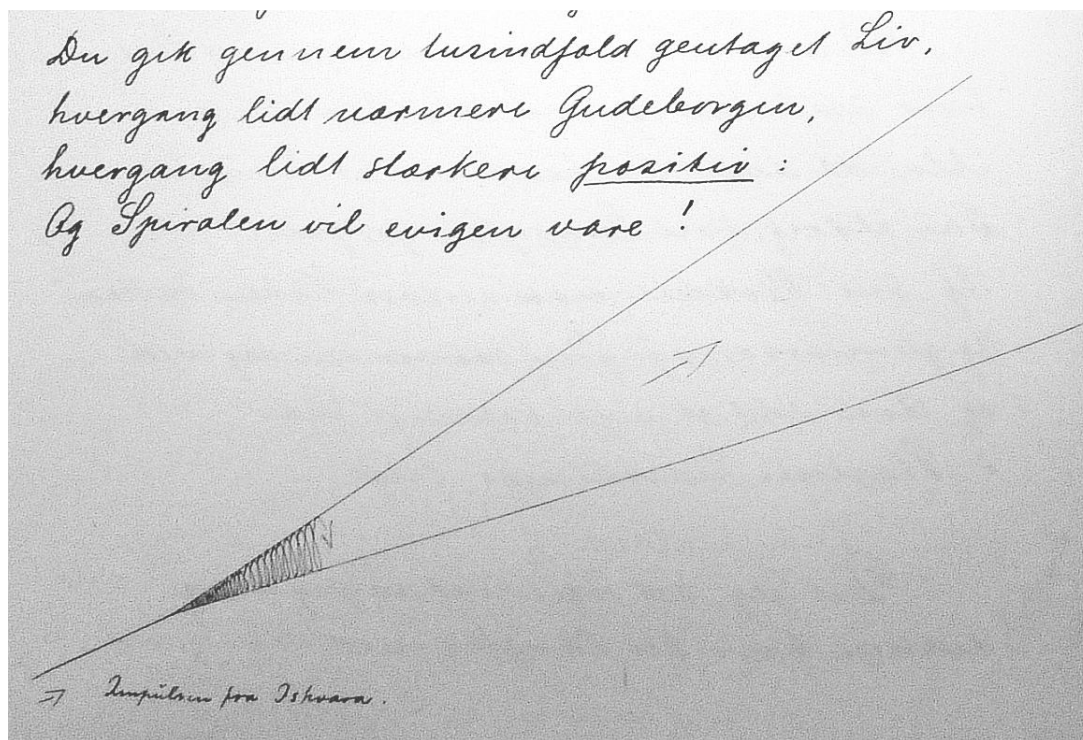 Du gik gennem tusindfold gentaget Liv,
hvergang lidt nærmere Gudeborgen,
hvergang lidt stærkere positiv :
Og Spiralen vil evigen vare !
Impulsen fra Ishvara.